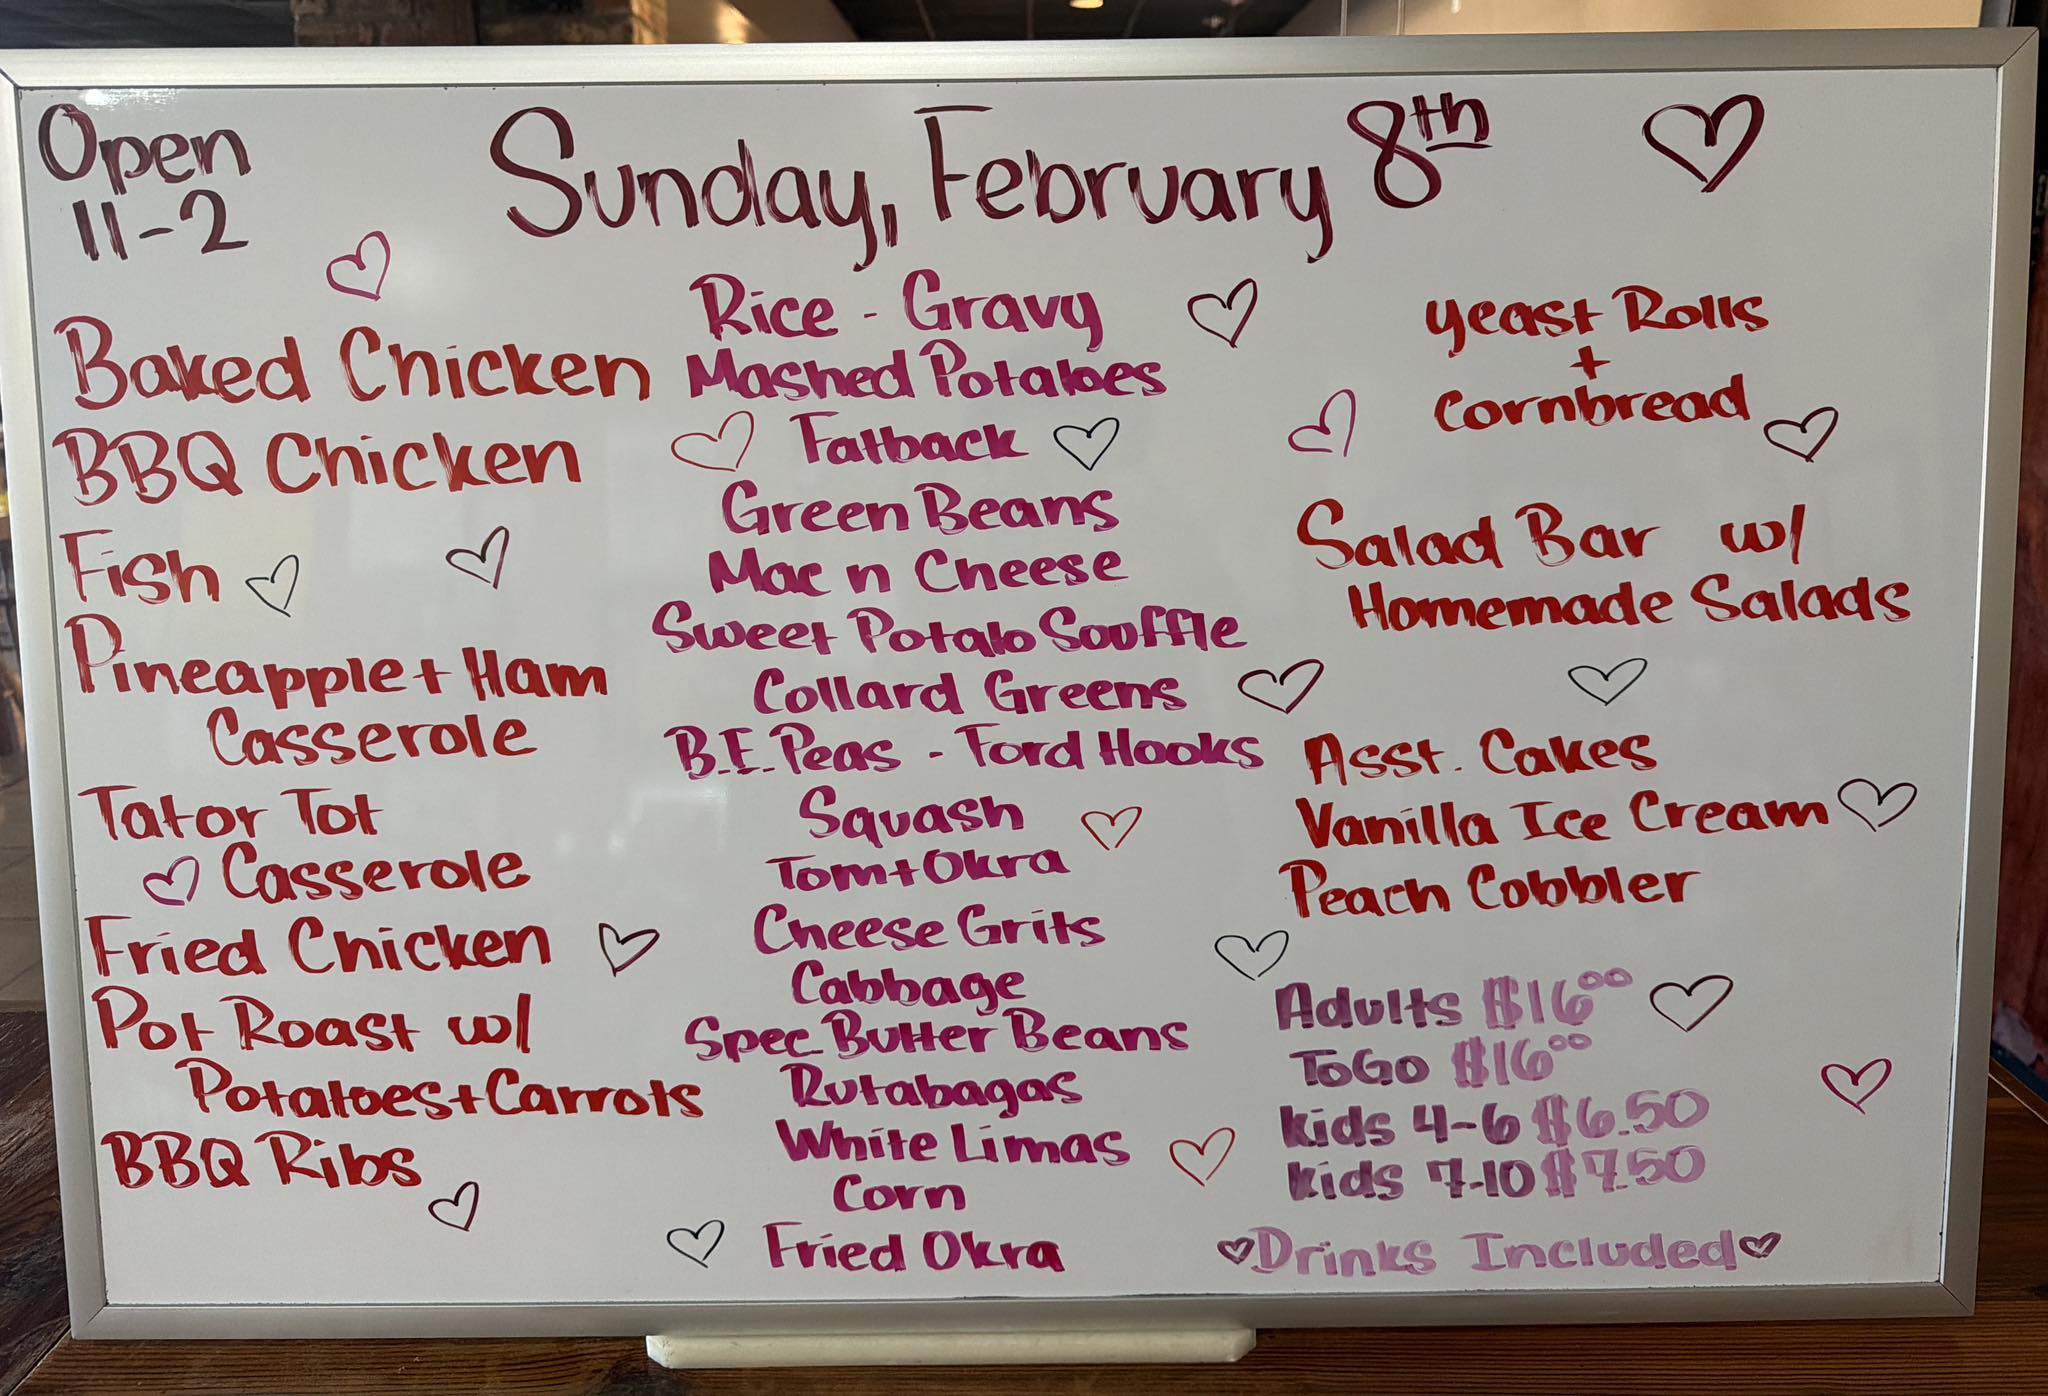 Open
11-2
Sunday, February 8th
Baked Chicken
BBQ Chicken
Fish
Pineapple + Ham
Casserole
Tator Tot
Casserole
Fried Chicken
Pot Roast w/
Potatoes + Carrots
BBQ Ribs
Rice - Gravy
Mashed Potatoes
Fatback
Green Beans
Mac n Cheese
Sweet Potato Souffle
Collard Greens
B.E. Peas - Ford Hooks
Squash
Tom + Okra
Cheese Grits
Cabbage
Spec Butter Beans
Rutabagas
White Limas
Corn
Fried Okra
Yeast Rolls
+
Cornbread
Salad Bar w/
Homemade Salads
Asst. Cakes
Vanilla Ice Cream
Peach Cobbler
Adults $16.00
ToGo $16.00
Kids 4-6 $6.50
Kids 7-10 $7.50
Drinks Included